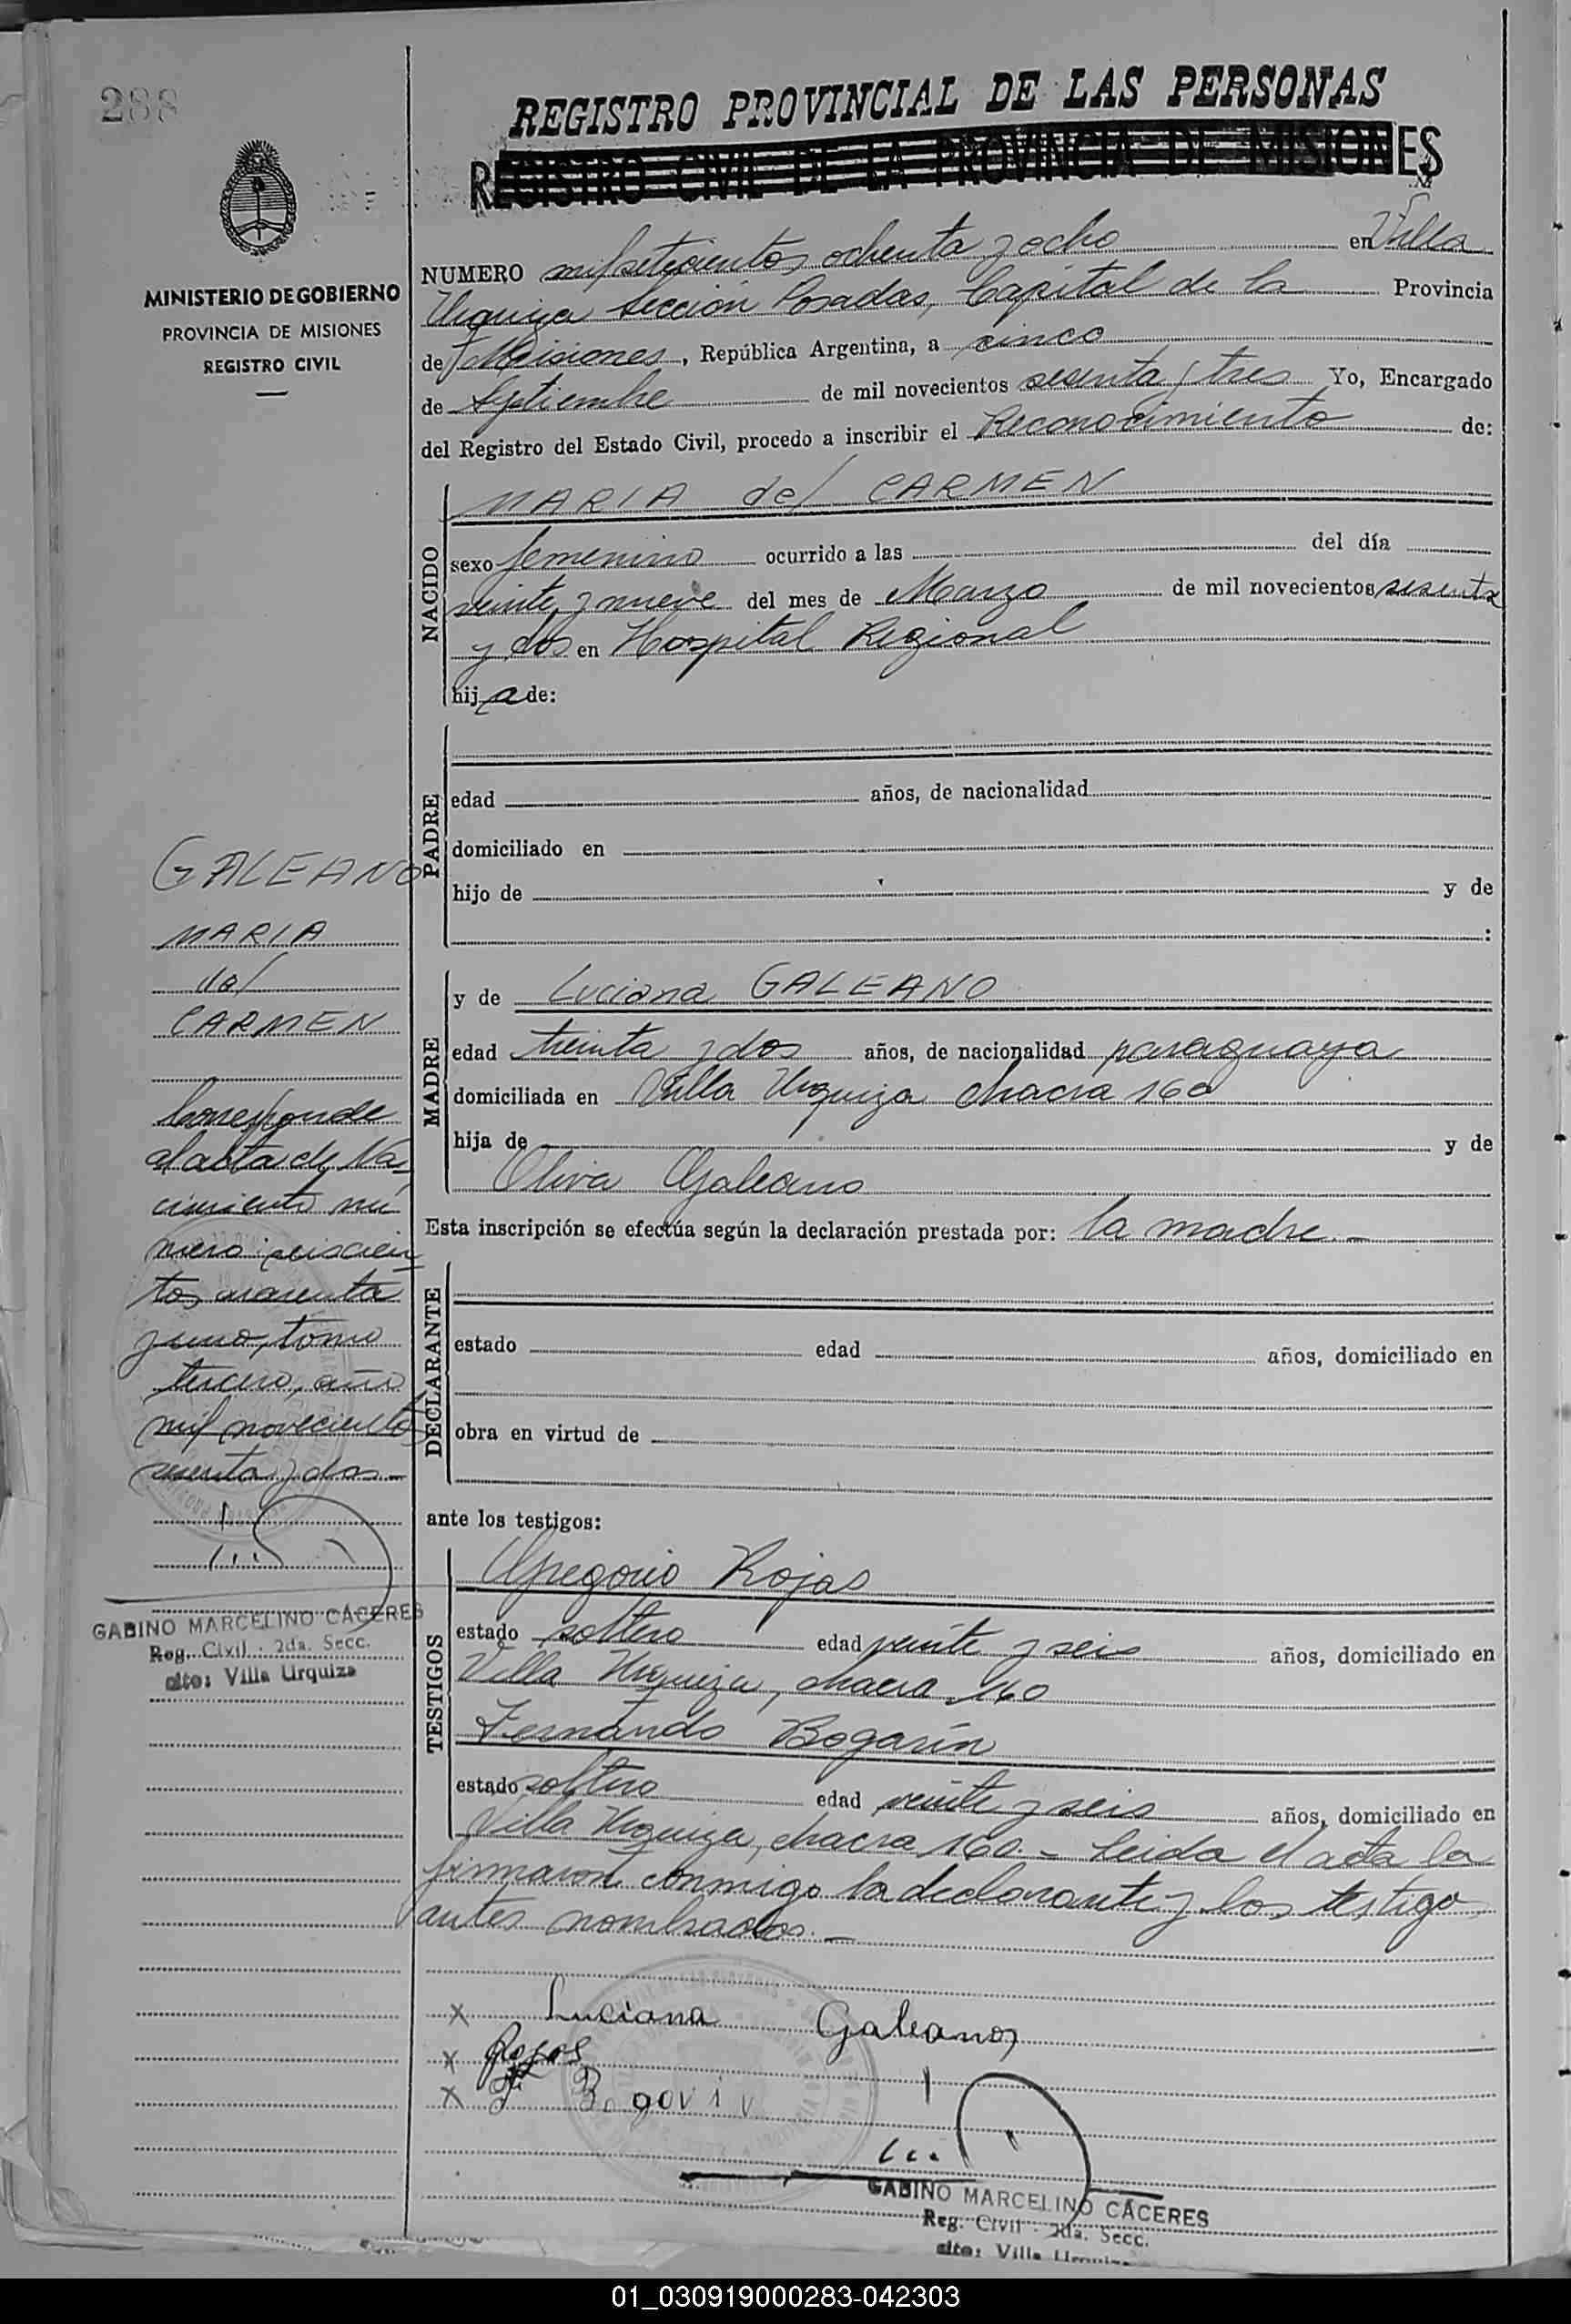 288
REGISTRO PROVINCIAL DE LAS PERSONAS
REGISTRO CIVIL DE LA PROVINCIA DE MISIONES
MINISTERIO DE GOBIERNO
PROVINCIA DE MISIONES
REGISTRO CIVIL
NUMERO mil setecientos ochenta y ocho en Villa
Urquiza Sección Posadas, Capital de la Provincia
de Misiones, República Argentina, a cinco
de Septiembre de mil novecientos sesenta y tres Yo, Encargado
del Registro del Estado Civil, procedo a inscribir el Reconocimiento de:
NACIDO
MARIA del CARMEN
sexo femenino ocurrido a las del día
veinte y nueve del mes de Marzo de mil novecientos sesenta
y dos en Hospital Regional
hija de:
PADRE
edad años, de nacionalidad
domiciliado en
hijo de y de
:
MADRE
y de Luciana GALEANO
edad treinta y dos años, de nacionalidad paraguaya
domiciliada en Villa Urquiza chacra 160
hija de y de
Oliva Galeano
Esta inscripción se efectúa según la declaración prestada por: la madre.-
DECLARANTE
estado edad años, domiciliado en
obra en virtud de
ante los testigos:
TESTIGOS
Gregorio Rojas
estado soltero edad veinte y seis años, domiciliado en
Villa Urquiza, chacra 160
Fernando Bogarín
estado soltero edad veinte y seis años, domiciliado en
Villa Urquiza, chacra 160.- Leida el acta la
firmaron conmigo la declarante y los testigo
antes nombrados.-
x Luciana Galeano
x Rojas
x F Bogovin
GABINO MARCELINO CÁCERES
Reg. Civil - 2da. Secc.
alto: Villa Urquiza
GALEANO
MARIA
del
CARMEN
Corresponde
al acta de Na-
cimiento nú
mero seiscien
tos cuarenta
y uno, tomo
tercero, año
mil novecientos
sesenta y dos-
GABINO MARCELINO CÁCERES
Reg. Civil - 2da. Secc.
alto: Villa Urquiza
01_030919000283-042303